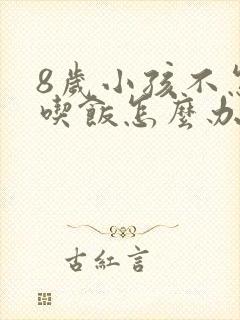 8歲小孩不怎
喫飯怎麼办
古紅言